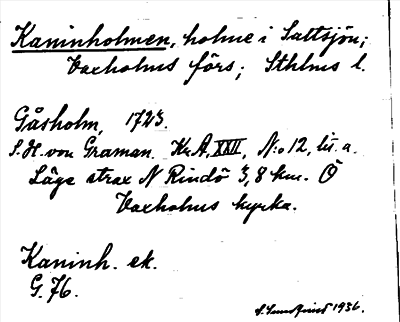 Kaninholmen, holme i Saltsjön;
Vaxholms förs; Sthlms l.
Gåsholm, 1723.
S. H. von Graman. Kr. A, XXII, N:o 12, lit. a.
Läge strax N Rindö 3,8 km. Ö
Vaxholms kyrka.
Kaninh. ek.
G. 76.
1936.